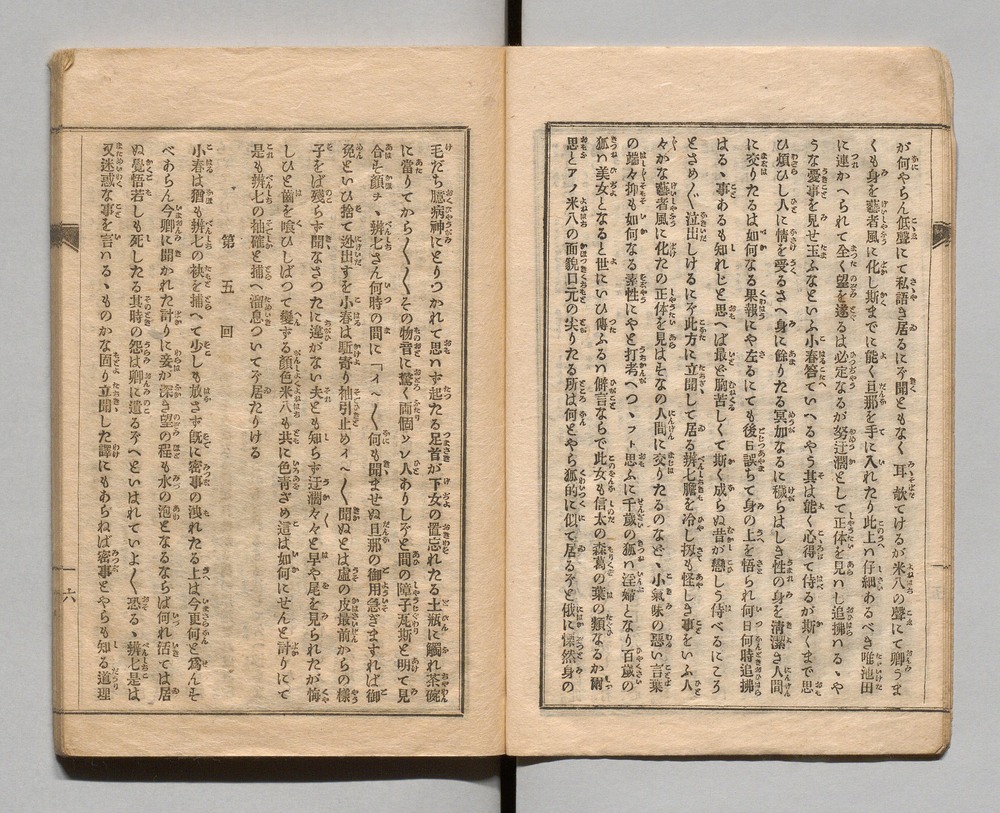 が何やらん低聲にて私語き居るにぞ聞ともなく耳欹てけるが米八の聲にて卿うま
くも身を藝者風に化し斯までに能く旦那を手に入れたり此上ハ仔細あるべき唯池田
に連かへられて全く望を遂るは必定なるが努迂濶として正体を見ハし追拂ハるゝや
うな憂事を見せ玉ふなといふ小春答ていへるやう其は能く心得て侍るが斯くまで思
ひ煩ひし人に情を受るさへ身に餘りたる冥加なるに穢らはしき性の身を清潔き人間
に交りたるは如何なる果報にや左るにても後日誤ちて身の上を悟られ何日何時追拂
はるゝ事あるも知れじと思へば最ど胸苦しくて斯く成らぬ昔が戀しう侍べるにころ
とさめ〴〵泣出しけるにぞ此方に立聞して居る辨七膽を冷し扨も怪しき事をいふ人
々かな藝者風に化たの正体を見はすなの人間に交りたるのなどゝ小氣味の惡い言葉
の端々抑も如何なる素性にやと打考へつゝフト思ふに千歳の狐ハ淫婦となり百歳の
狐ハ美女となると世にいひ傳ふるハ僻言ならで此女も信太の森葛の葉の類なるか爾
思とアノ米八の面貌口元の尖りたる所は何とやら狐的に似て居るぞと俄に慄然身の
毛だち臆病神にとりつかれて思ハず起たる足首が下女の置忘れたる土瓶に觸れ茶碗
に當りてから〳〵〳〵その物音に驚く兩個ソレ人ありしぞと間の障子瓦斯と明て見
合す顏ヲヽ辨七さん何時の間に「イ〳〵何も聞ませぬ旦那の御用急ぎますれば御
免といひ捨て迯出すを小春は駈寄り袖引止めイ〳〵聞ぬとは虛の皮最前からの樣
子をば殘らず聞なさつたに違がない夫とも知らず迂濶々々と早や尾を見られたが悔
しひと齒を喰ひしばつて變する顏色米八も共に色青ざめ這は如何にせんと計りにて
是も辨七の袖確と捕へ溜息ついてぞ居たりける
第五回
小春は猶も辨七の袂を捕へて少しも放さず旣に密事の洩れたる上は今更何と爲んそ
べあらん今卿に聞かれた計りに妾が深き望の程も水の泡となるならば何れ活ては居
ぬ覺悟若しも死したる其時の怨は卿に遺るぞへといはれていよ〳〵恐るゝ辨七是は
又迷惑な事を言ハるゝものかな固り立聞した譯にもあらねば密事とやらも知る道理
六